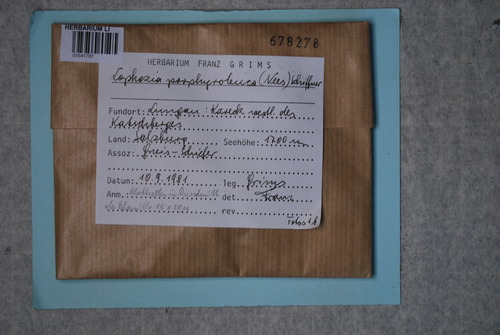 HERBARIUM LI
678278
HERBARIUM FRANZ GRIMS
Lophozia porphyroleuca (Nees) Schiffner
Fundort: Lungau: Kareck westl. des
Katschberges
Land: Salzburg Seehöhe: 1700 m
Assoz: Gneis-
Datum: 10.9.1981 leg. Grims
Anm. det. Franz
rev.